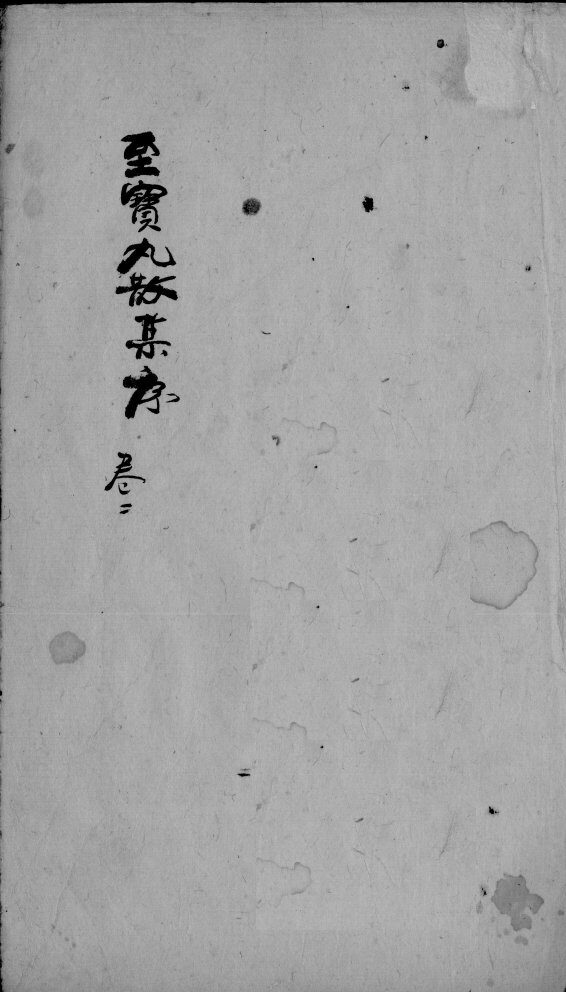 至寶丸散集序
卷二